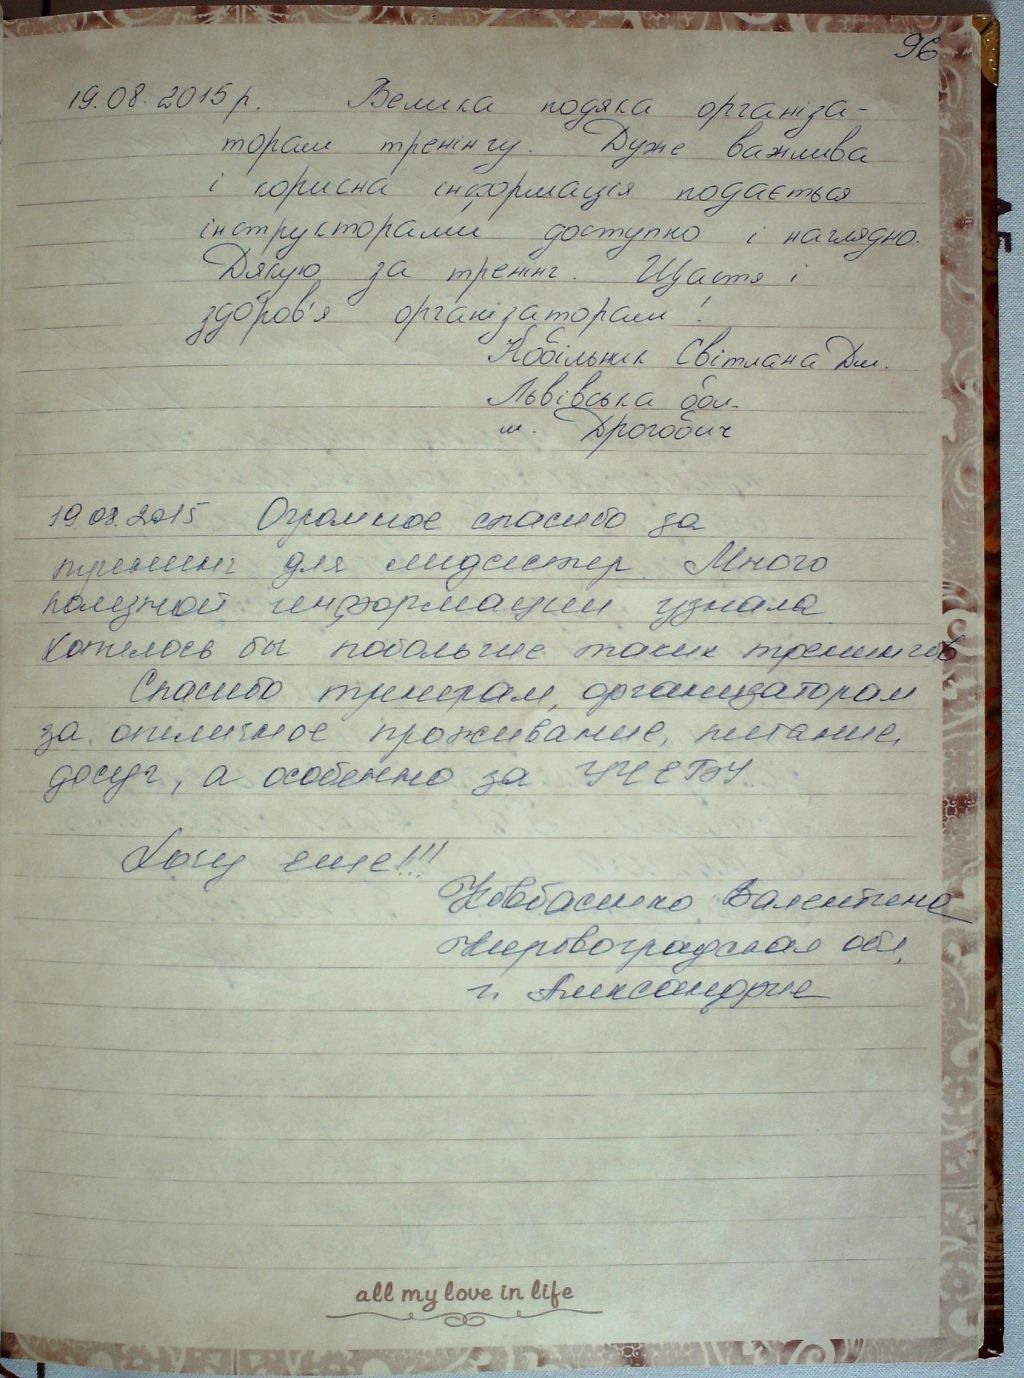 96
19.08.2015р. Велика подяка організа-
торам тренінгу. Дуже важлива
і корисна інформація подається
інструкторами доступно і наглядно.
Дякую за тренінг. Щастя і
здоров'я організаторам!
Кобільник Світлана Дм.
Львівська обл.
м. Дрогобич
19.08.2015 Огромное спасибо за
тренинг для медсестер. Много
полезной информации узнала
Хотелось бы побольше таких тренингов
Спасибо тренерам, организаторам
за отличное проживание, питание,
досуг, а особенно за УЧЕБУ
Хочу еще!!!
Ковбасенко Валентина
Кировоградская обл,
г. Александрия
all my love in life